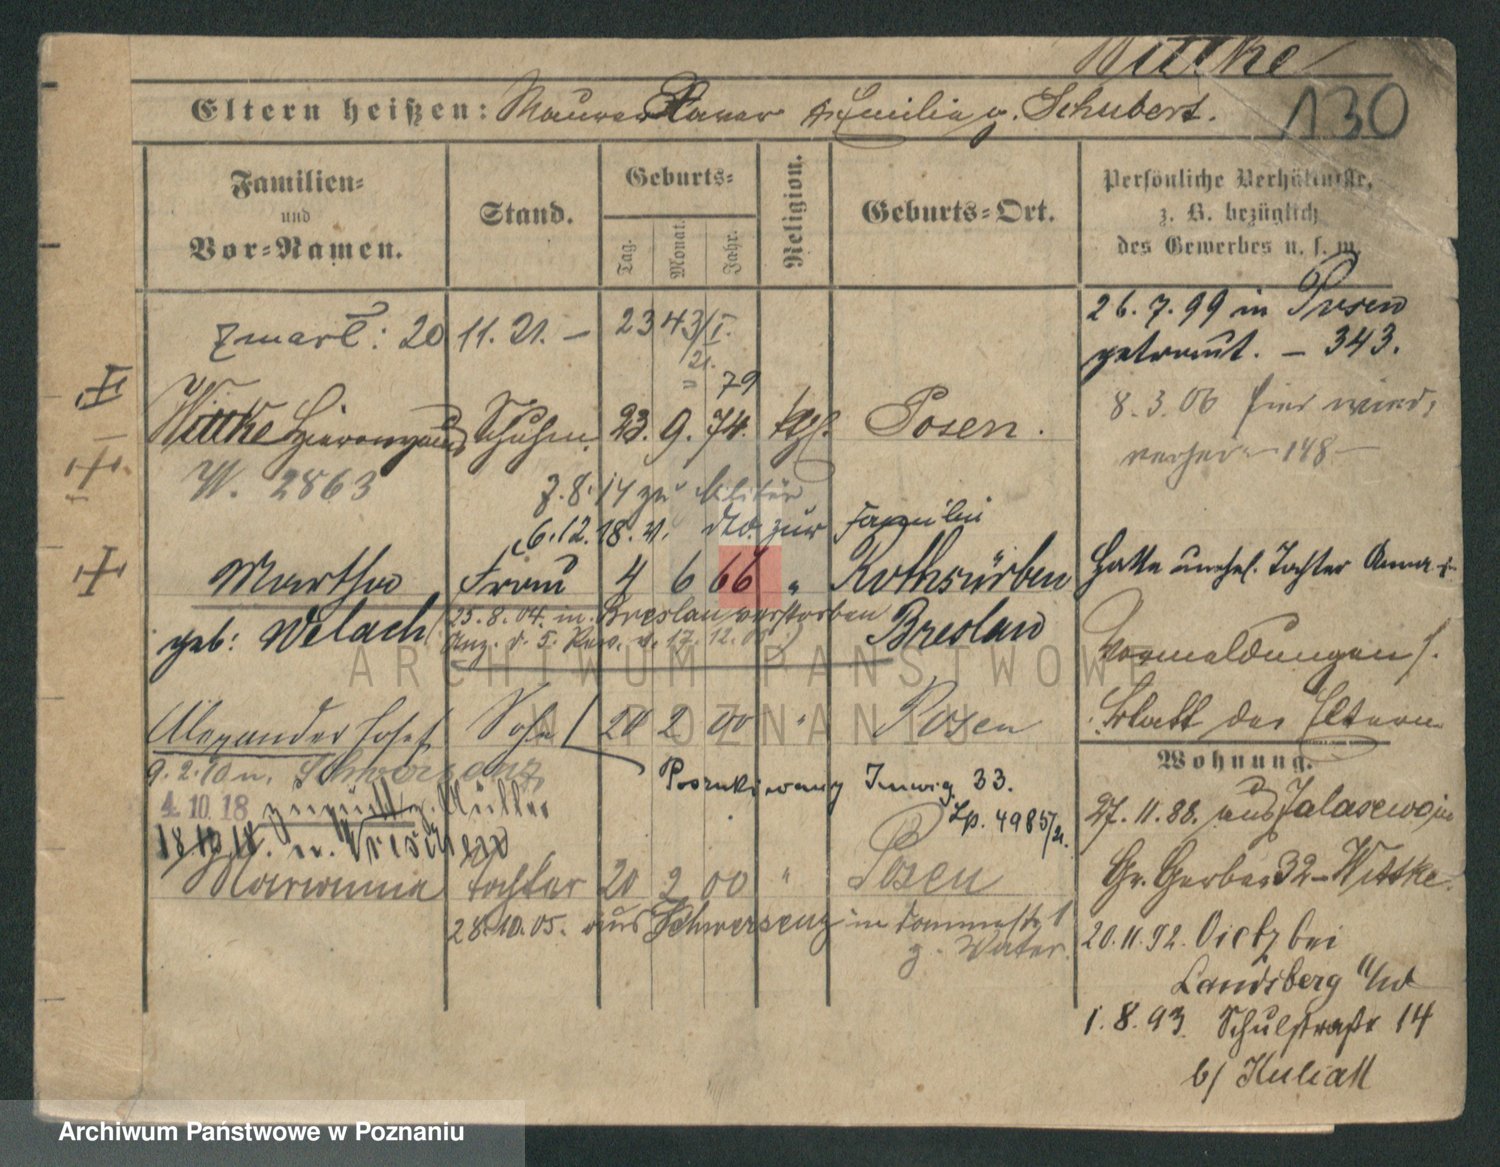 Wittke
130
Eltern heißen: Maurer Xaver u. Emilia g. Schubert.
Familien-
und
Vor-Namen.
Stand.
Geburts-
Tag.
Monat.
Jahr.
Religion.
Geburts-Ort.
Persönliche Verhältnisse,
z. B. bezüglich
des Gewerbes u. s. w.
zmarł: 20 11. 21. – 2343/I.
21.
26. 7. 99 in Posen
getraut. – 343.
79
8. 3. 06 hier wied.
148 –
Wittke Hieronymus Schuhm. 23. 9. 74. kth. Posen.
W. 2863
7. 8. 14 zu Militär
6. 12. 18. v. dto. zur Familie
Martha Frau 4 6 66 " Rothsürben
geb: Welach Breslau
25. 8. 04. in Breslau verstorben
Anz. d. 5. Rev. v. 17. 12. 05.
Hatte unehel. Tochter Anna
Vormeldungen s.
Blatt der Eltern
Alexander Josef Sohn 20 2 00 " Posen
9. 2. 20 n. Schwersenz
Poszukiwany Inwig. 33.
Lp. 4985/21.
4. 10. 18 zurück g. Müller
18. 10. 18. n. Wreschen
Marianna Tochter 20 2 00 " Posen
28. 10. 05. aus Schwersenz in
z. Vater.
Wohnung.
27. 11. 88. aus Zalasewo in
Gr. Gerber 32 – Wittke.
20. 11. 92. Vietz bei
Landsberg a/W
1. 8. 93. Schulstraße 14
b/ Kuliak
ARCHIWUM PAŃSTWOWE
W POZNANIU
Archiwum Państwowe w Poznaniu